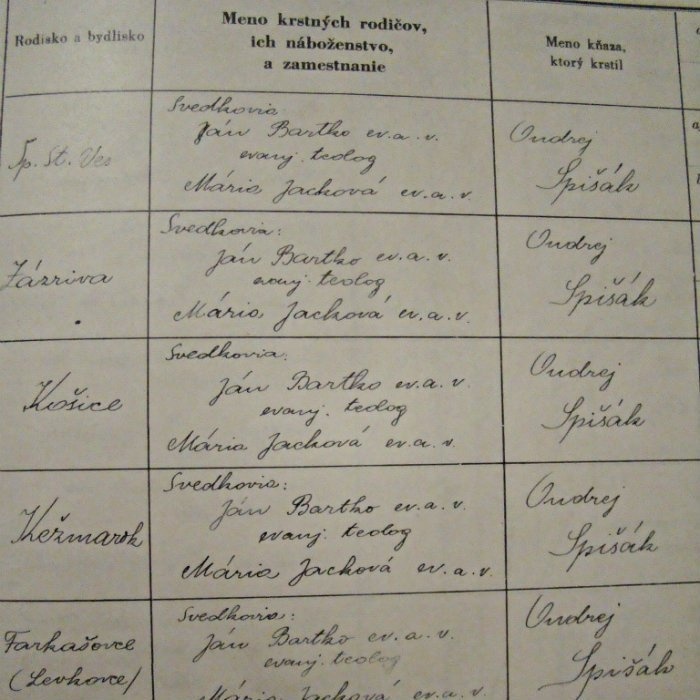 Rodisko a bydlisko
Meno krstných rodičov,
ich náboženstvo,
a zamestnanie
Meno kňaza,
ktorý krstil
Sp. St. Ves
Svedkovia:
Ján Bartko ev. a. v.
evanj. teolog
Mária Jacková ev. a. v.
Ondrej
Spišák
Zázriva
Svedkovia:
Ján Bartko ev. a. v.
evanj. teolog
Mária Jacková ev. a. v.
Ondrej
Spišák
Košice
Svedkovia:
Ján Bartko ev. a. v.
evanj. teolog
Mária Jacková ev. a. v.
Ondrej
Spišák
Kežmarok
Svedkovia:
Ján Bartko ev. a. v.
evanj. teolog
Mária Jacková ev. a. v.
Ondrej
Spišák
Farkašovce
(Levkovce)
Svedkovia:
Ján Bartko ev. a. v.
evanj. teolog
Mária Jacková ev. a. v.
Ondrej
Spišák